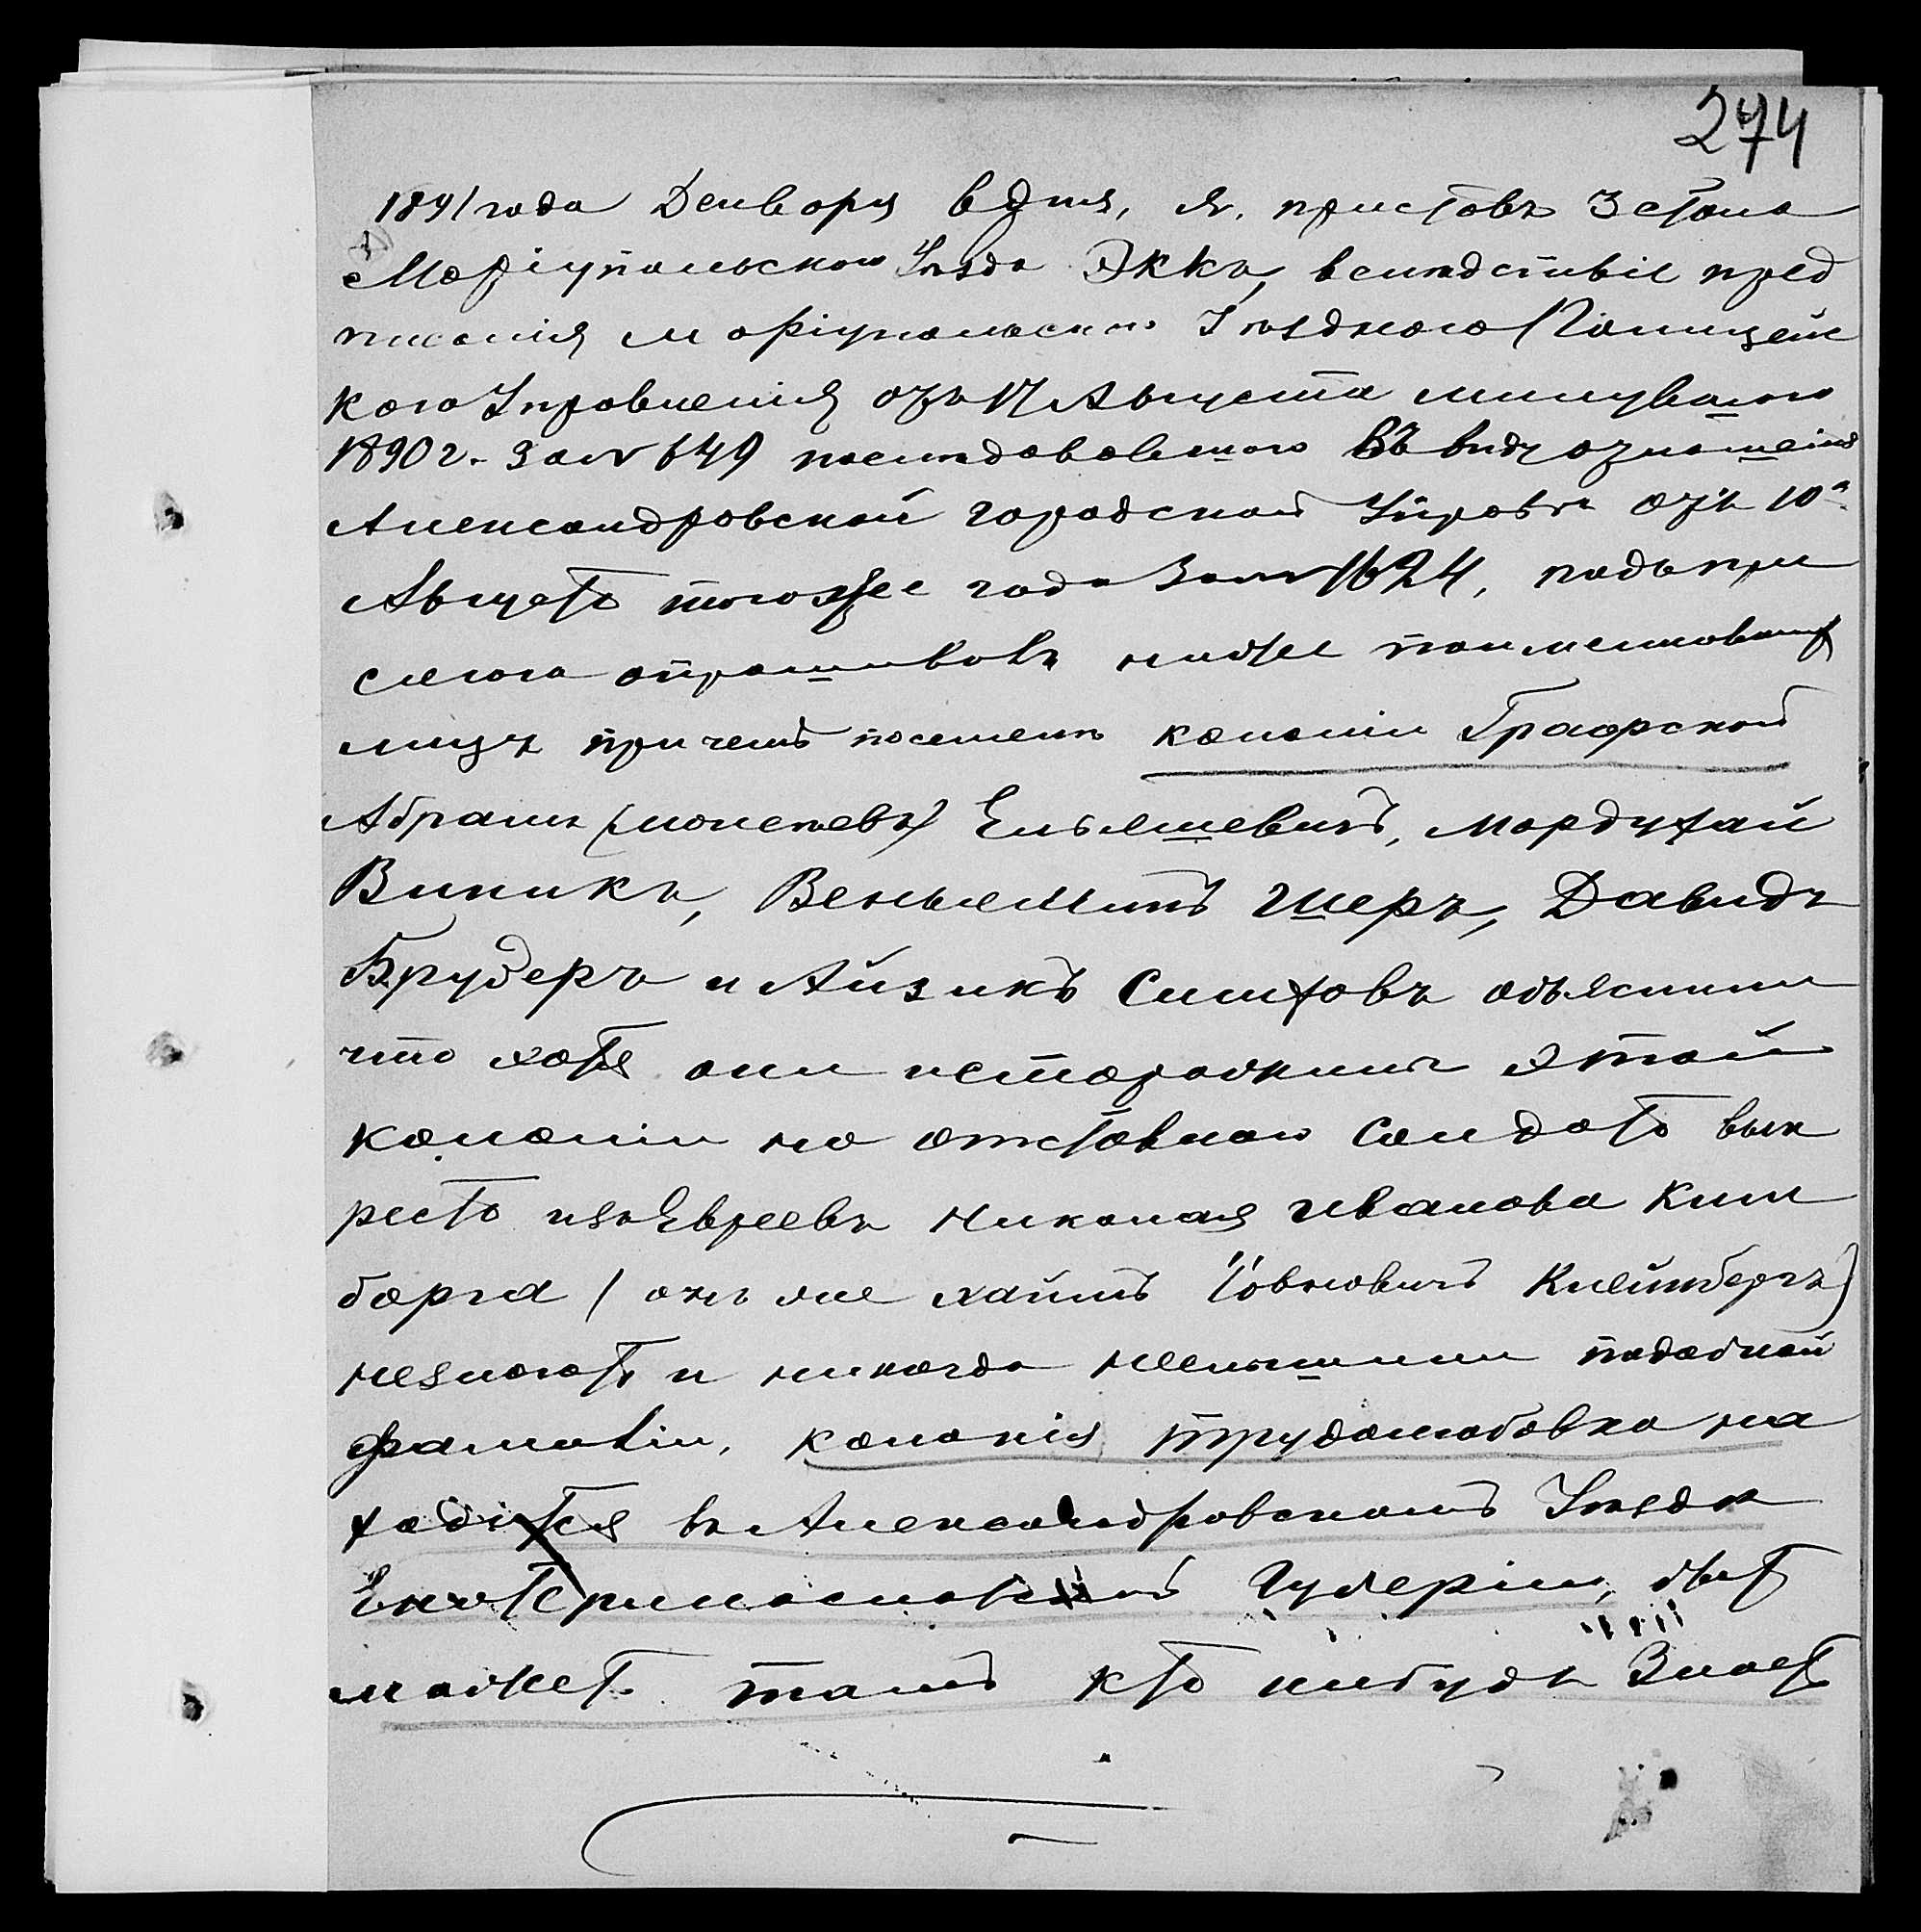 274
1891 года Декворя 6 дня, я. приставъ 3 стана
Моріупольскаго Уѣзда Эккъ, вслѣдствіе пред
писанія моріупольскаго Уѣзднаго Полицейс
каго Управленія отъ 17 Августа минувшаго
1890 г. за № 649 послѣдовавшаго въ виду отношенія
Александровской городской Управы отъ 10го
Августа тогоже года за № 1624, подъ при
сягою опрашивалъ ниже поименованныхъ
лицъ причемъ поселенъ колоніи Графской
Абрамъ (иопелевъ) Ельяшевичъ, Мордухай
Виникъ, Веньяминъ Шеръ, Давидъ
Брудеръ и Айзикъ Симховъ объяснили
что хотя они и сторожилы этой
колоніи но отставнаго солдата вык
реста изъ Евреевъ Николая Иванова Ким
борга (онъ же хаимъ Іовновичъ Клейнбергъ)
незнаютъ и никогда неслышали подобной
фамиліи, колонія трудолюбовка на
ходится въ Александровскомъ Уѣздѣ
Екатеринославской Губерніи, быт
можетъ тамъ кто нибудь Знаетъ